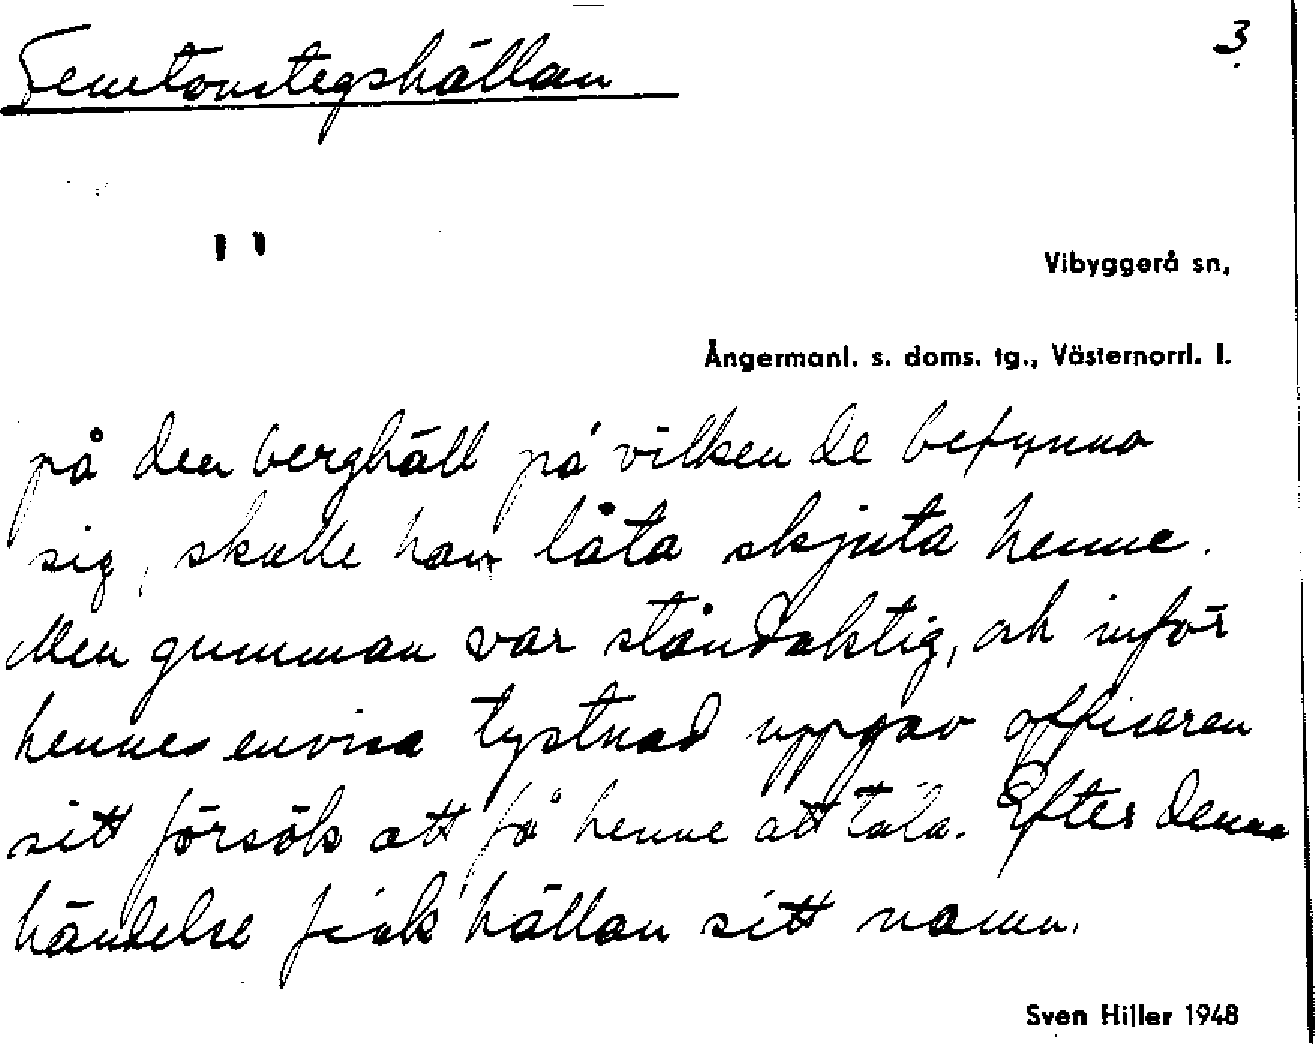 3.
Femtonstegshällan
"
Vibyggerå sn,
Ångermanl. s. doms. tg., Västernorrl. l.
på den berghäll på vilken de befunno
sig, skulle han låta skjuta henne.
Men gumman var ståndaktig, och inför
hennes envisa tystnad uppgav officeren
sitt försök att få henne att tala. Efter denna
händelse fick hällan sitt namn.
Sven Hiller 1948